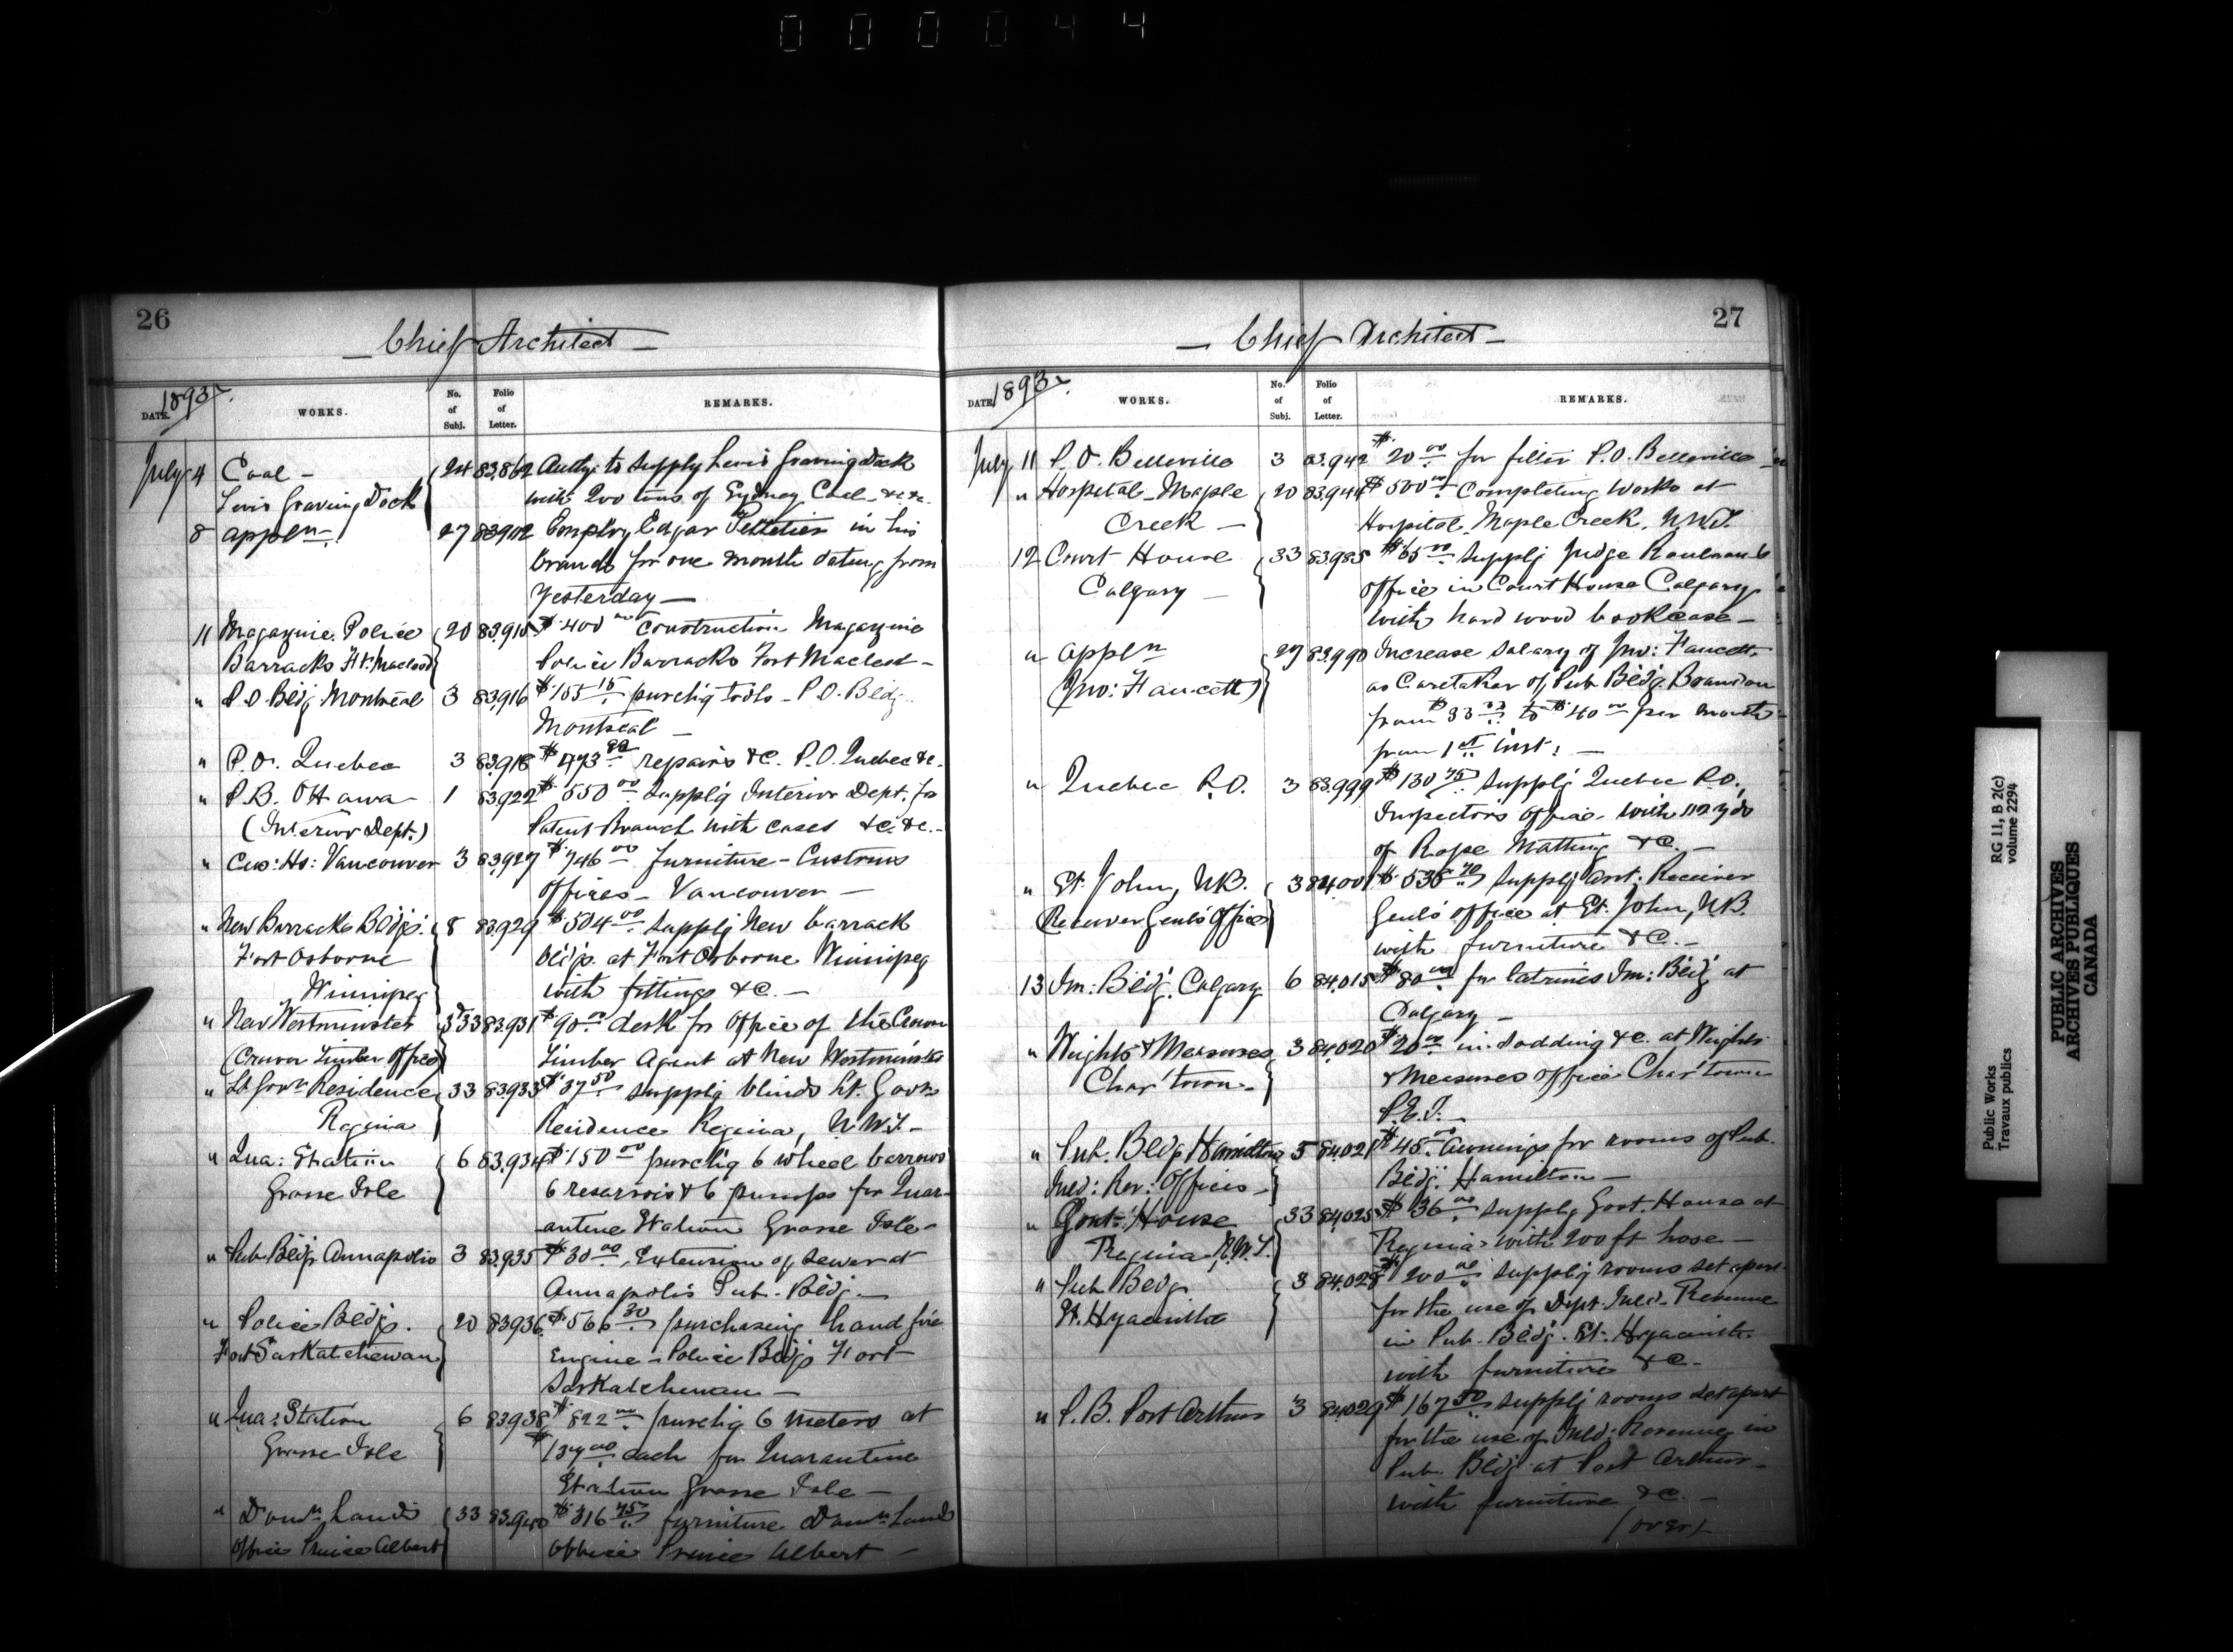 000044
26
Chief Architect
1893
DATE. WORKS. No. of Subj. Folio of Letter. REMARKS.
July 4 Coal - 24 83,862 Authy: to supply Levis Graving Dock
Levis Graving Dock with 200 tons of Sydney Coal - &c &c.
8 appln. 27 83,902 Employ Edgar Pelletier in his
branch for one month dating from
Yesterday -
11 Magazine Police 20 83,915 $400 00 Construction Magazine
Barracks Ft: Macleod Police Barracks Fort Macleod -
" P.O. Bldg Montreal 3 83,916 $155 15 purch'g tools - P.O. Bldg.
Montreal -
" P.O. Quebec 3 83,918 repairs &C. P.O. Quebec &c.
" P.B. Ottawa 1 83,922 $550 00 suppl'g Interior Dept. for
(Interior Dept.) Patent Branch with cases &c. &c. -
" Cus: Ho: Vancouver 3 83,927 $746 00 furniture - Customs
Offices - Vancouver -
" New Barracks Bldgs. 8 83,929 $504 00 supplg New barrack
Fort Osborne bldgs. at Fort Osborne Winnipeg
Winnipeg with fittings &C. -
" New Westminster 33 83,931 $90 00 desk for office of the Crown
(Crown Timber Office) Timber Agent at New Westminster
" Lt Govrs Residence 33 83,933 $37 50 supplg blinds Lt. Govrs
Regina Residence Regina, N.W.T. -
" Qua: Station 6 83,934 $150 00 purch'g 6 wheel barrows
Grosse Isle 6 reservoirs & 6 pumps for Quar-
antine Station Grosse Isle -
" Pub. Bldg. Annapolis 3 83,935 $30 00 Extension of sewer at
Annapolis Pub. Bldg. -
" Police Bldgs. 20 83,936 $566 30 purchasing hand fire
Fort Saskatchewan Engine - Police Bldgs Fort
Saskatchewan -
" Qua: Station 6 83,938 $822 00 purch'g 6 meters at
Grosse Isle $137 00 each for Quarantine
Station Grosse Isle -
" Domn Lands 33 83,940 $316 75 furniture Domn Lands
Office Prince Albert Office Prince Albert -
27
Chief Architect -
1893
DATE WORKS. No. of Subj. Folio of Letter. REMARKS.
July 11 P.O. Belleville 3 83,942 $20 00 for filter P.O. Belleville
" Hospital - Maple 20 83,944 $500 00 Completing works at
Creek - Hospital, Maple Creek, N.W.T.
12 Court House 33 83,985 $65 00 supplg Judge Rouleau's
Calgary - office in Court House Calgary
with hard wood bookcase -
" appln 27 83,990 Increase salary of Jno: Faucett
(Jno: Faucett) as Caretaker of Pub Bldg. Brandon
from $33 to $40 00 per month
from 1st inst: -
" Quebec P.O. 3 83,999 $130 75 supplg Quebec P.O.
Inspector's Office - with 112 yds
of Rope Matting &C. -
" St. John, N.B. 3 84,001 $535 70 supplg Asst: Receiver
Receiver Genl's Office Genl's office at St. John, N.B.
with furniture &C. -
13 Im: Bldg. Calgary 6 84,015 $80 00 for latrines Im: Bldg at
Calgary -
" Weights & Measures 3 84,020 $20 00 in sodding &c. at Weights
Char'town - & Measures office Char'town
P.E.I. -
" Pub. Bldg Hamilton 3 84,021 $45 00 awnings for rooms of Pub.
Inld: Rev: Offices - Bldg. Hamilton -
" Govt: House 33 84,025 $36 00 supplg Govt. House at
Regina N.W.T. Regina with 200 ft hose -
" Pub Bldg 3 84,028 $200 00 supplg rooms set apart
St. Hyacinthe for the use of Dept. Inld. Revenue
in Pub. Bldg. St. Hyacinthe
with furniture &C -
" P.B. Port Arthur 3 84,029 $167 50 supplg rooms set apart
for the use of Inld: Revenue in
Pub. Bldg. at Port Arthur -
with furniture &C. -
(over)
Public Works
Travaux publics
RG 11, B 2(c)
volume 2294
PUBLIC ARCHIVES
ARCHIVES PUBLIQUES
CANADA